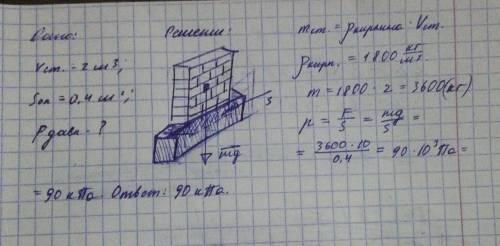 Дано:
Vст. = 2 м³;
Sоп = 0,4 м²;
Pдавл - ?
Решение:
S
mg
mст. = ρкирпича · Vст.
ρкирп. = 1800 кг/м³.
m = 1800 · 2 = 3600 (кг)
p = F/S = mg/S =
= 3600 · 10/0,4 = 90 · 10³ Па =
= 90 кПа. Ответ: 90 кПа.